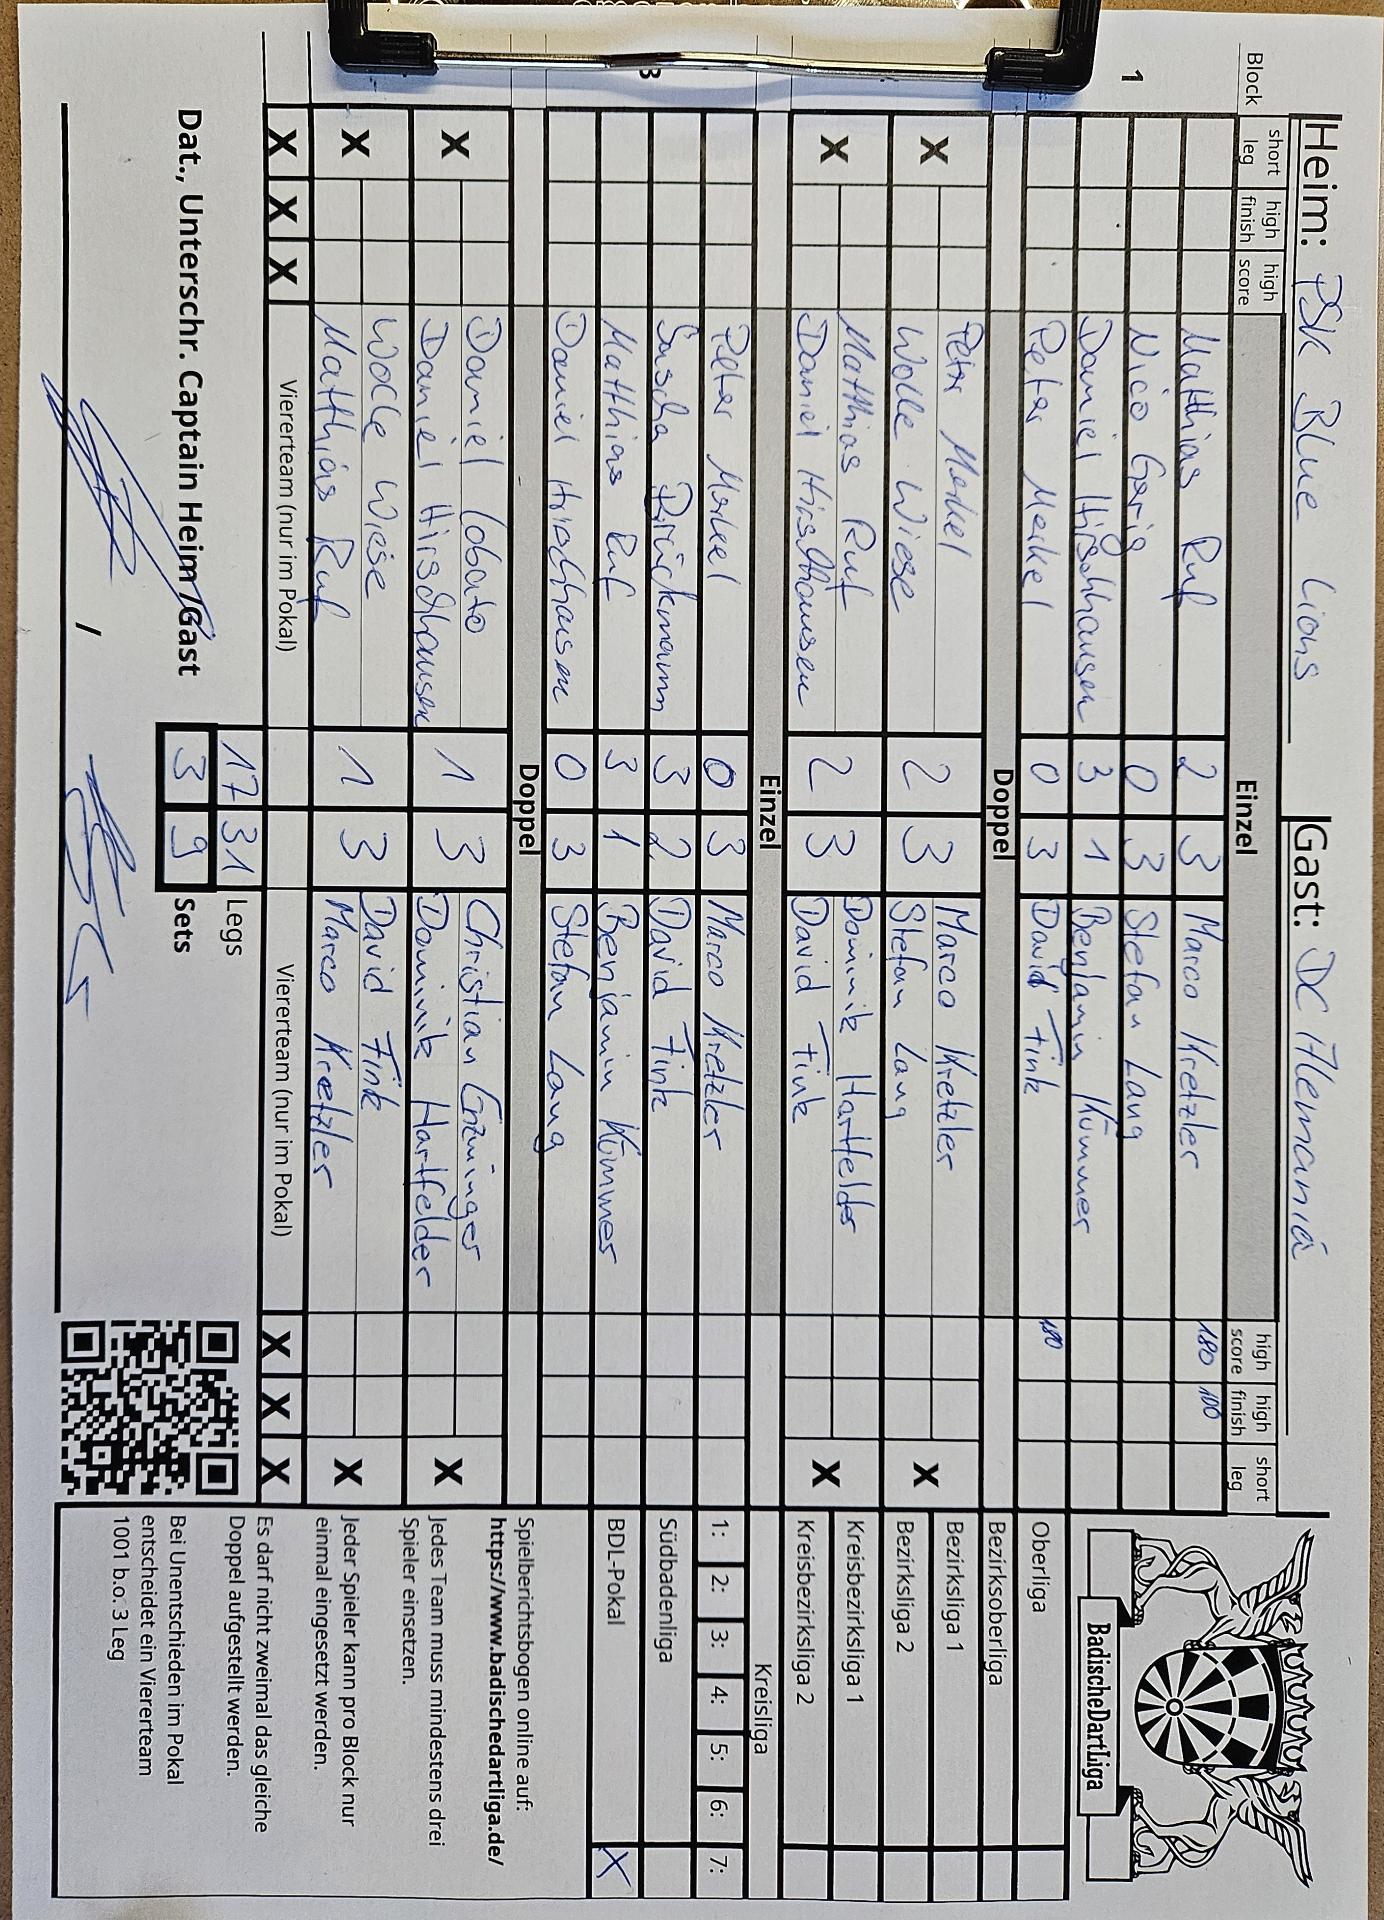 Heim: PSK Blue Lions Gast: DC Alemania
Block short leg high finish high score Einzel high score high finish short leg
1
Matthias Ruf 2 3 Marco Kretzler 180 100
Nico Gerig 0 3 Stefan Lang
Daniel Hirschhausen 3 1 Benjamin Kümmer
Peter Merkel 0 3 David Fink 180
Doppel
Peter Merkel Marco Kretzler
X Wolle Wiese 2 3 Stefan Lang X
Matthias Ruf Dominik Hartfelder
X Daniel Hirschhausen 2 3 David Fink X
Einzel
Peter Merkel 0 3 Marco Kretzler
3
Sascha Brückmann 3 2 David Fink
Matthias Ruf 3 1 Benjamin Kümmer
Daniel Hirschhausen 0 3 Stefan Lang
Doppel
Daniel Lobato Christian Enzminger
X Daniel Hirschhausen 1 3 Dominik Hartfelder X
Wolle Wiese David Fink
X Matthias Ruf 1 3 Marco Kretzler X
X X X Viererteam (nur im Pokal) Viererteam (nur im Pokal) X X X
17 31 Legs
3 9 Sets
Dat., Unterschr. Captain Heim /Gast
/
BadischeDartLiga
Oberliga
Bezirksoberliga
Bezirksliga 1
Bezirksliga 2
Kreisbezirksliga 1
Kreisbezirksliga 2
Kreisliga
1: 2: 3: 4: 5: 6: 7:
Südbadenliga
BDL-Pokal X
Spielberichtsbogen online auf:
https://www.badischedartliga.de/
Jedes Team muss mindestens drei
Spieler einsetzen.
Jeder Spieler kann pro Block nur
einmal eingesetzt werden.
Es darf nicht zweimal das gleiche
Doppel aufgestellt werden.
Bei Unentschieden im Pokal
entscheidet ein Viererteam
1001 b.o. 3 Leg